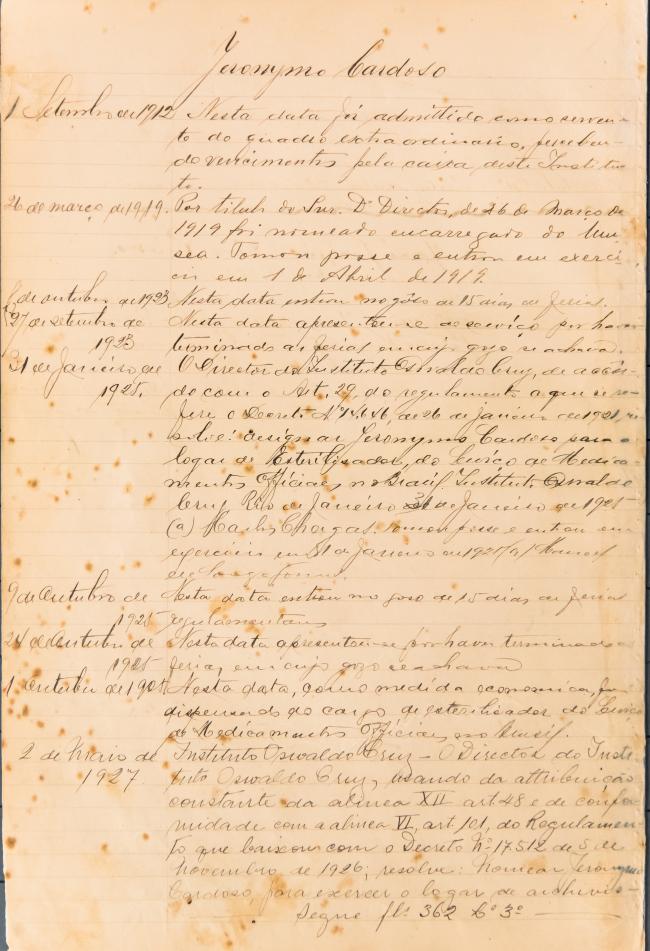 Jeronymo Cardoso
1 Setembro de 1912 Nesta data foi admittido como serven-
to do quadro extraordinario, perceben-
do vencimentos pela caixa deste Institu-
to.
26 de março de 1919. Por titulo do Snr. Dr Director, de 26 de Março de
1919 foi nomeado encarregado do Mu-
seu. Tomou posse e entrou em exerci-
cio em 1 de Abril de 1919.
de outubro de 1923 Nesta data entrou no góso de 15 dias de ferias.
27 de setembro de Nesta data apresentou-se ao serviço por haver
1923 terminado as ferias em cujo gozo se achava.
31 de Janeiro de O Director do Instituto Oswaldo Cruz, de accôr-
1925. do com o Art. 29, do regulamento a que se re-
fere o Decreto Nº de 26 de Janeiro de 1921, re-
solve: designar Jeronymo Cardoso para o
logar de Esterilisador, do Serviço de Medica-
mentos Officiaes no Brasil, Instituto Oswaldo
Cruz Rio de Janeiro 31 de Janeiro de 1925
(a) Carlos Chagas. Tomou posse e entrou em
exercicio em 31 de Janeiro de 1925 (a)
9 de Outubro de Nesta data entrou no goso de 15 dias de ferias
1925 regulamentares
24 de Outubro de Nesta data apresentou-se por haver terminado a
1925 ferias, em cujo gozo se achava
1 outubro de Nesta data, como medida economica, foi
dispensado do cargo de esterilisador do Serviço
de Medicamentos Officiaes no Brasil.
2 de Maio de Instituto Oswaldo Cruz - O Director do Insti-
1927. tuto Oswaldo Cruz, usando da attribuição
constante da alinea XII art 48 e de confor-
midade com a alinea VI, art 101, do Regulamen-
to que baixou com o Decreto Nº 17.512 de 5 de
Novembro de 1926; resolve: Nomear Jeronymo
Cardoso, para exercer o logar de archivis-
Segue fls. 362 Lº 3º